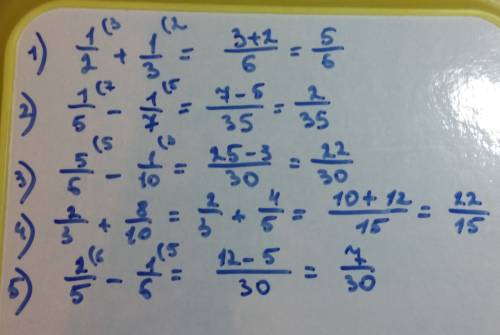 1) 1/2 (3 + 1/3 (2 = 3+2/6 = 5/6
2) 1/5 (7 - 1/7 (5 = 7-5/35 = 2/35
3) 5/6 (5 - 1/10 (3 = 25-3/30 = 22/30
4) 2/3 + 8/10 = 2/3 + 4/5 = 10+12/15 = 22/15
5) 2/5 (6 - 1/6 (5 = 12-5/30 = 7/30